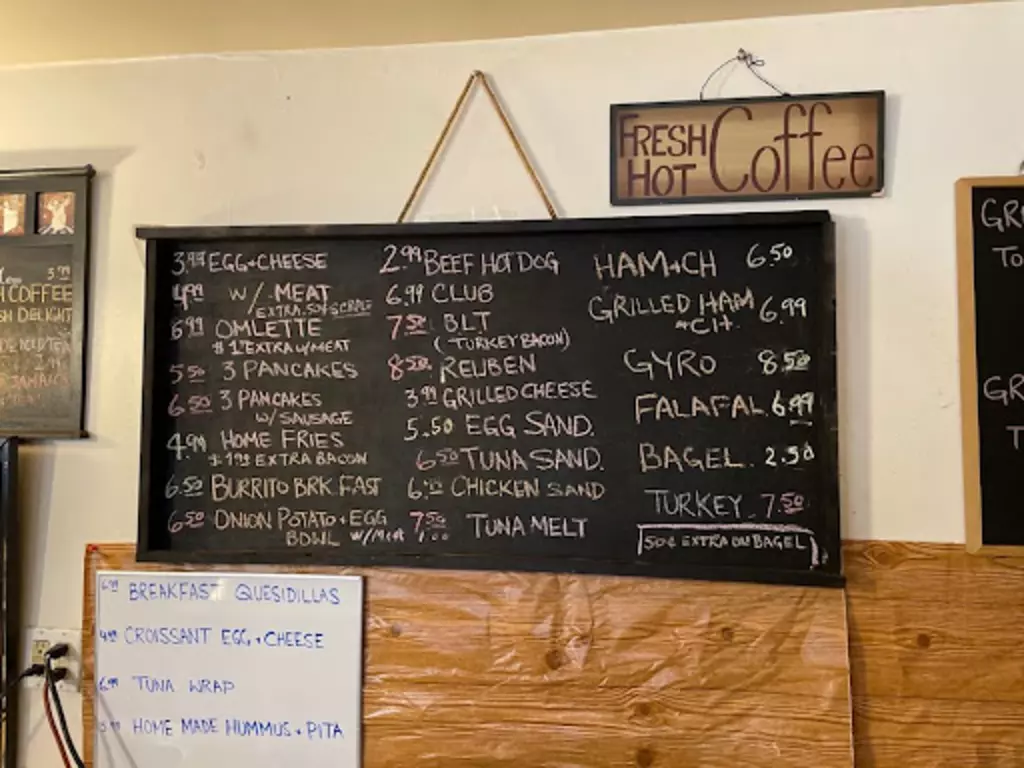 FRESH HOT Coffee
3.99
H COFFEE
SH DELIGHT
3.99 EGG+CHEESE
4.99 W/ MEAT
EXTRA .50¢ SCRAPL
6.99 OMLETTE
$1 EXTRA W/MEAT
5.50 3 PANCAKES
6.50 3 PANCAKES
W/ SAUSAGE
4.99 HOME FRIES
$1.99 EXTRA BACON
6.50 BURRITO BRK. FAST
6.50 ONION POTATO+EGG
BOWL w/Meat 1.00
2.99 BEEF HOT DOG
6.99 CLUB
7.50 BLT
(TURKEY BACON)
8.50 REUBEN
3.99 GRILLED CHEESE
5.50 EGG SAND.
6.50 TUNA SAND.
6.99 CHICKEN SAND
7.50 TUNA MELT
HAM+CH 6.50
GRILLED HAM 6.99
+CH.
GYRO 8.50
FALAFAL 6.99
BAGEL. 2.50
TURKEY 7.50
50¢ EXTRA ON BAGEL
GR
TO
GR
T
6.99 BREAKFAST QUESIDILLAS
4.99 CROISSANT EGG+CHEESE
6.99 TUNA WRAP
HOME MADE HUMMUS+PITA